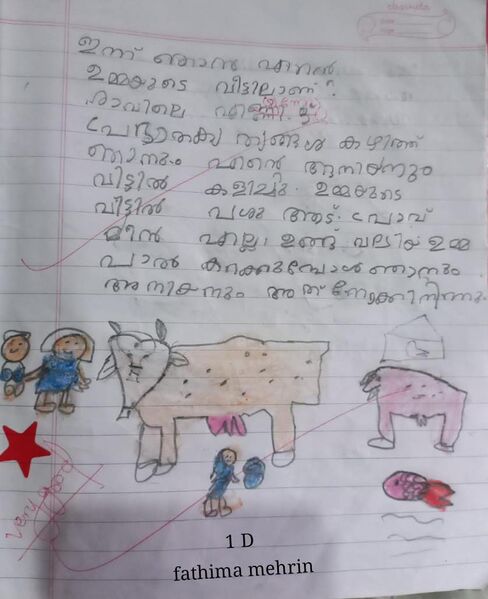 ഇന്ന് ഞാൻ എന്റെ
ഉമ്മയുടെ വീട്ടിലാണ്?
രാവിലെ എണ്ണി
കഴിഞ്ഞ്
ഞാനും എന്റെ അനിയനും
വീട്ടിൽ കളിച്ചു. ഉമ്മയുടെ
വീട്ടിൽ പശു ആട്. പ്രാവ്
മീൻ എല്ലാ ഉണ്ട് വലിയ ഉമ്മ
പാൽ കറക്കുമ്പോൾ ഞാനും
അനിയനും അത് നോക്കി നിന്നു.
very good
1 D
fathima mehrin